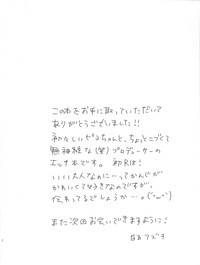 この本をお手に取っていただいて
ありがとうございました!!
初々しいピヨちゃんと、ちょっとニブくて
無神経な(笑)プロデューサーの
エッチ本です。初Rは!
いい大人なのに…ってかんじが
かわいくて好きなのですが、
伝わってるでしょうか…。(・ω・)
また次回お会いできますように!